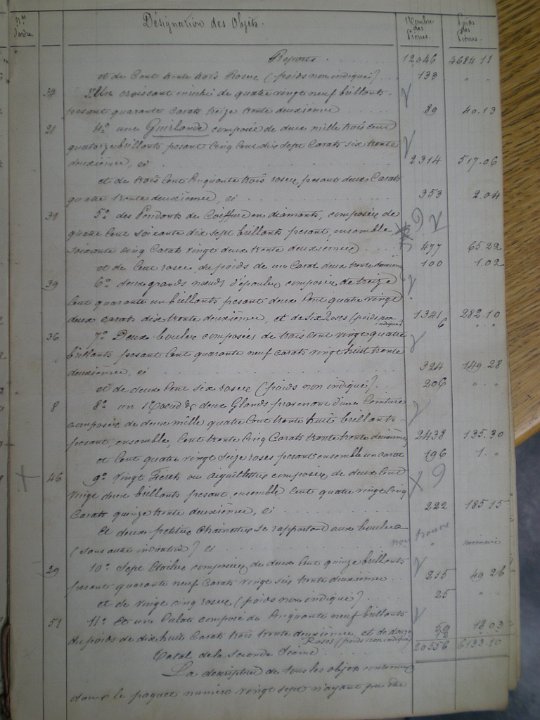 Nos d'ordre Désignation des Objets. Nombre des Pierres. Poids des Pierres.
Report 12046 4684.11
et de Cent trente trois Roses (poids non indiqué) 133 "
Un croissant monté de quatre vingt neuf brillants
pesant quarante Carats treize trente deuxièmes 89 40.13
21 4º une Guirlande composée de deux mille trois cent
quatorze brillants pesant Cinq Cent dix sept Carats six trente
deuxièmes, ci 2314 517.06
et de trois Cent Cinquante trois roses pesant deux Carats
quatre trente deuxièmes, ci 353 2.04
31 5º des Pendants de Coiffure en diamants, composée de
quatre Cent soixante dix sept brillants pesant ensemble
soixante cinq Carats vingt deux trente deuxièmes 477 65.22
et de Cent roses du poids de un Carat deux trente deuxièmes 100 1.02
39 6º deux grands nœuds d'épaules composés de treize
Cent quarante un brillants pesant deux Cent quatre vingt
deux Carats dix trente deuxièmes, et de six Roses (poids non indiqué) 1341 282.10
6
36 7º Deux boucles composées de trois Cent vingt quatre
brillants pesant Cent quarante neuf Carats vingt huit trente
deuxièmes, ci 324 149.28
et de deux Cent six roses (poids non indiqué) 206 "
8 8º un Nœud à deux Glands provenant d'une Ceinture
composée de deux mille quatre Cent trente huit brillants
pesant ensemble Cent trente Cinq Carats trente trente deuxièmes 2438 135.30
et Cent quatre vingt seize roses pesant ensemble un carat 196 1. "
46 9º vingt Ferrets ou aiguillettes composés de deux Cent
vingt deux brillants pesant ensemble Cent quatre vingt Cinq
Carats quinze trente deuxièmes, ci 222 185.15
et deux petites Chaînettes se rapportant aux boucles
(sans autre indication) ci non trouvé mémoire
29 10º Sept Etoiles composées de deux Cent quinze brillants
pesant quarante neuf Carats vingt six trente deuxièmes 215 49.26
et de vingt cinq roses (poids non indiqué) 25 "
51 11º et une composé de Cinquante neuf brillants
du poids de dix huit Carats trois trente deuxièmes, et de douze 59 18.03
Roses (poids non indiqué) 12
Total de la seconde série 20556
La description de tous les objets contenus
dans le paquet numéro vingt sept n'ayant pu être